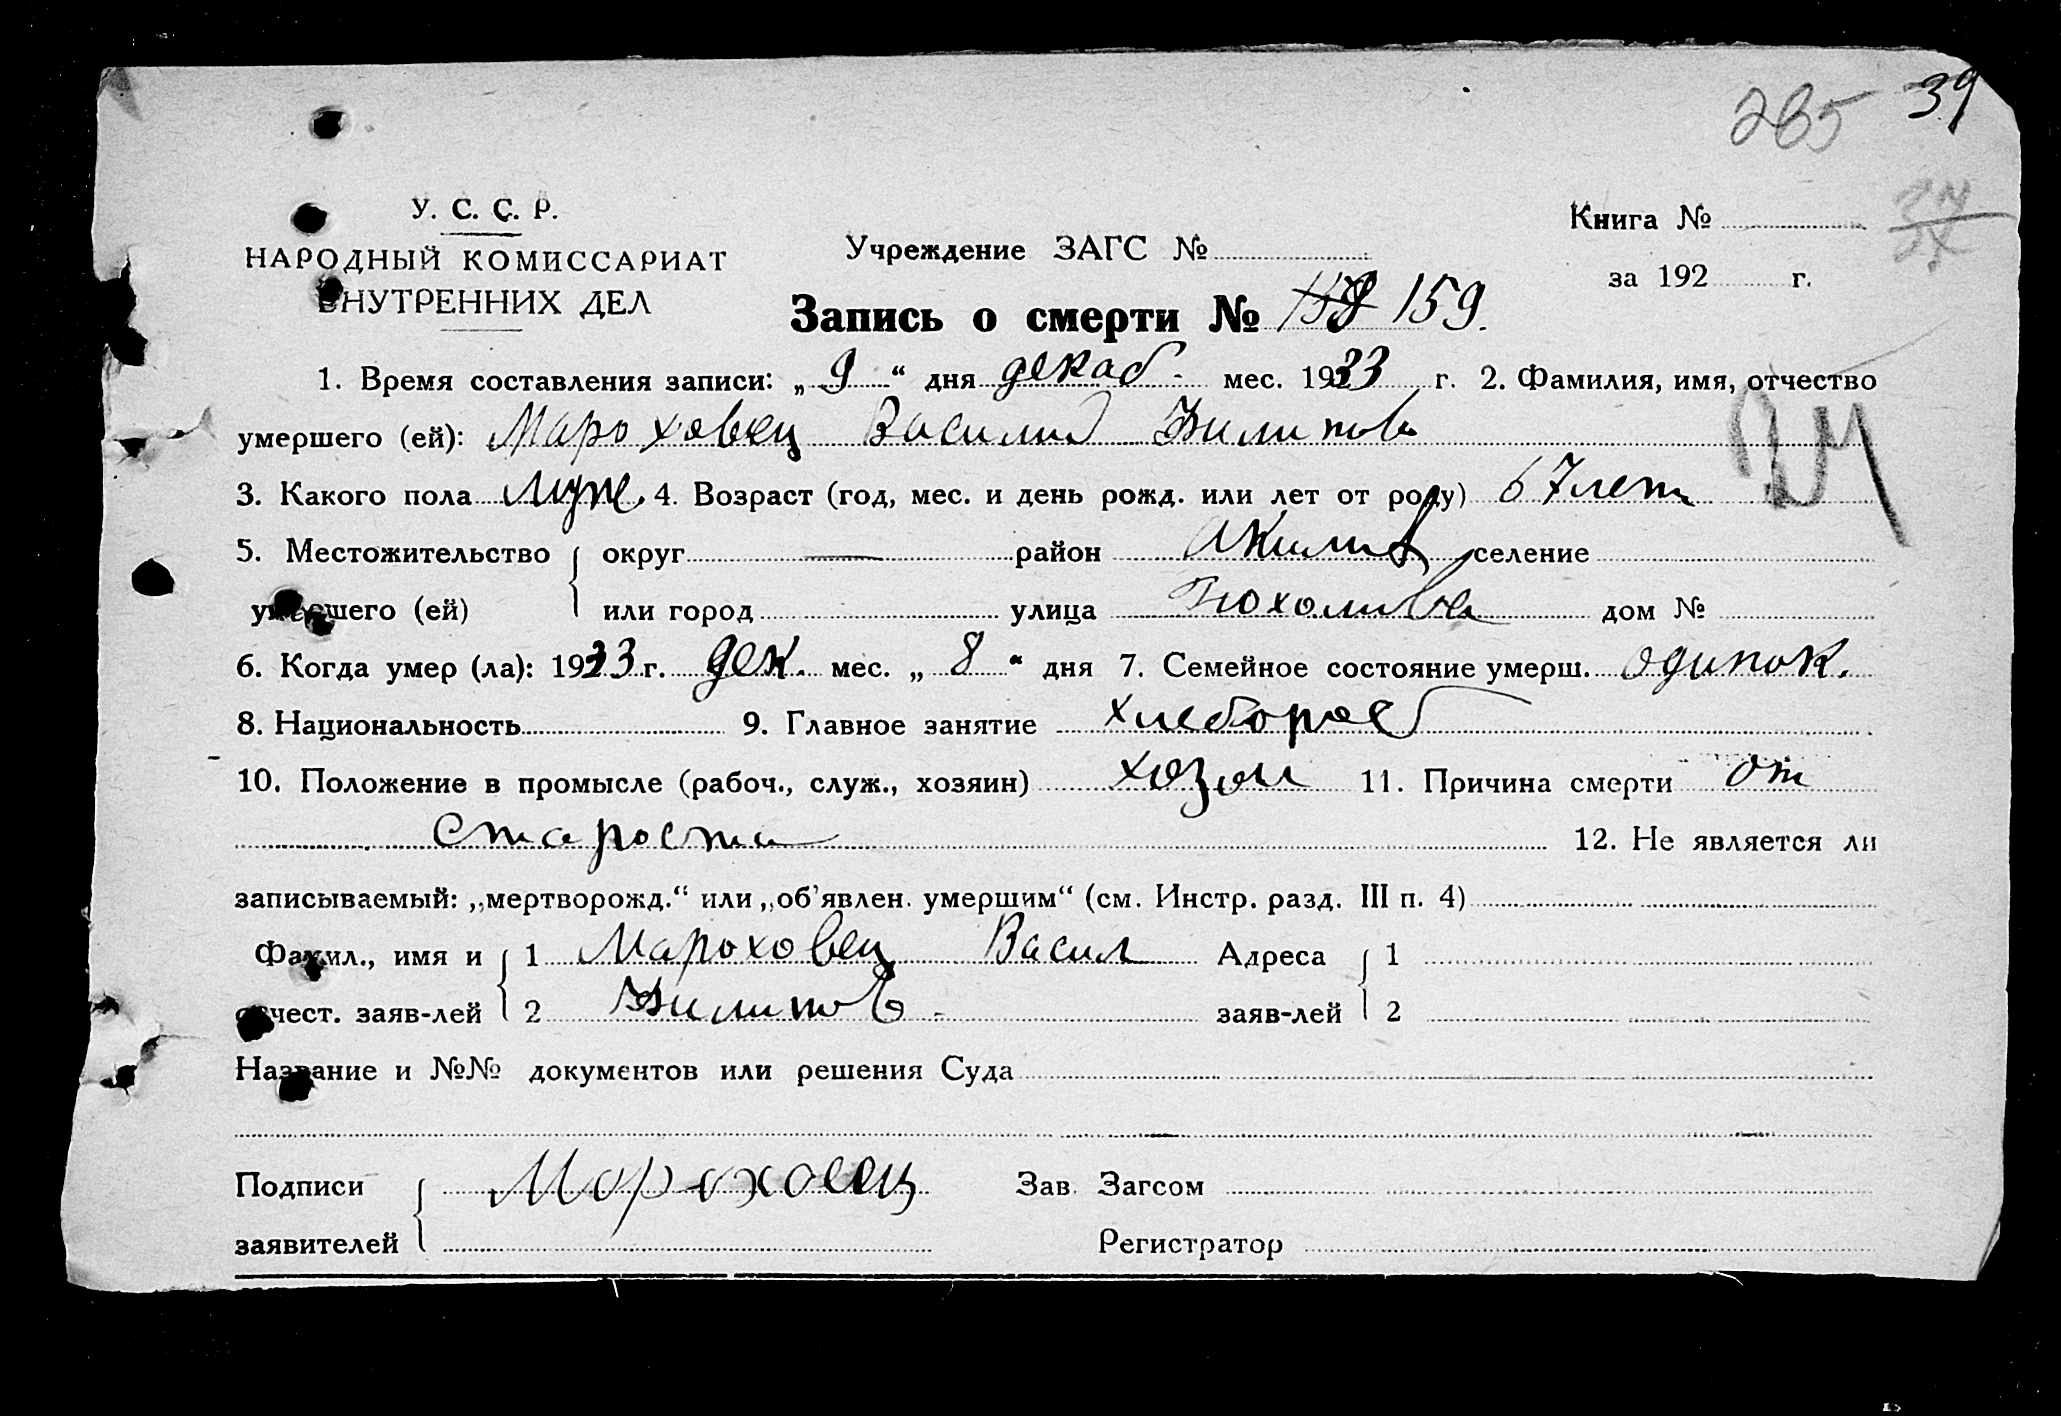 265 39
37
У. С. С. Р.
НАРОДНЫЙ КОМИССАРИАТ
ВНУТРЕННИХ ДЕЛ
Учреждение ЗАГС №
Книга №
за 192 г.
Запись о смерти № 159.
1. Время составления записи: „9“ дня декаб. мес. 1933 г. 2. Фамилия, имя, отчество
умершего (ей): Мароховец Василий Филипов
3. Какого пола муж 4. Возраст (год, мес. и день рожд. или лет от роду) 67 лет
5. Местожительство округ — район Акимов селение
умершего (ей) или город улица дом №
6. Когда умер (ла): 1933 г. дек. мес. „8“ дня 7. Семейное состояние умерш. одинок.
8. Национальность 9. Главное занятие хлебороб
10. Положение в промысле (рабоч., служ., хозяин) хозяи 11. Причина смерти от
старости 12. Не является ли
записываемый: „мертворожд.“ или „об'явлен. умершим“ (см. Инстр. разд. III п. 4)
Фамил., имя и 1 Мароховец Васил Адреса 1
отчест. заяв-лей 2 Филипов заяв-лей 2
Название и №№ документов или решения Суда
Подписи Мороховец Зав. Загсом
заявителей Регистратор